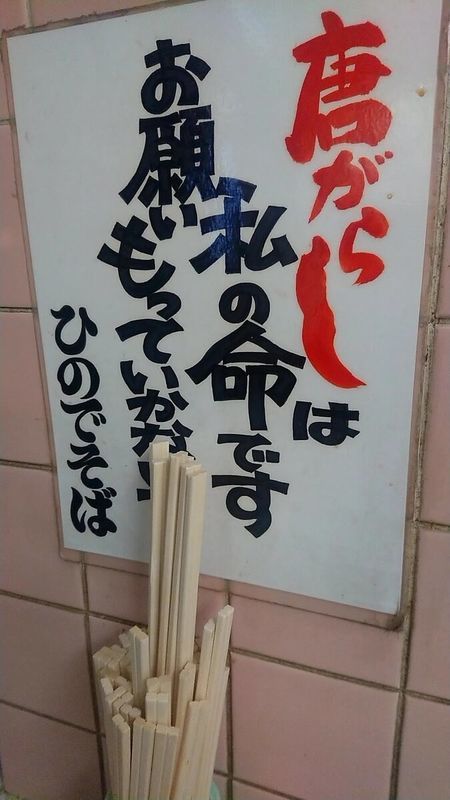 唐がらしは
私の命です
お願いもっていかない
ひのでそば